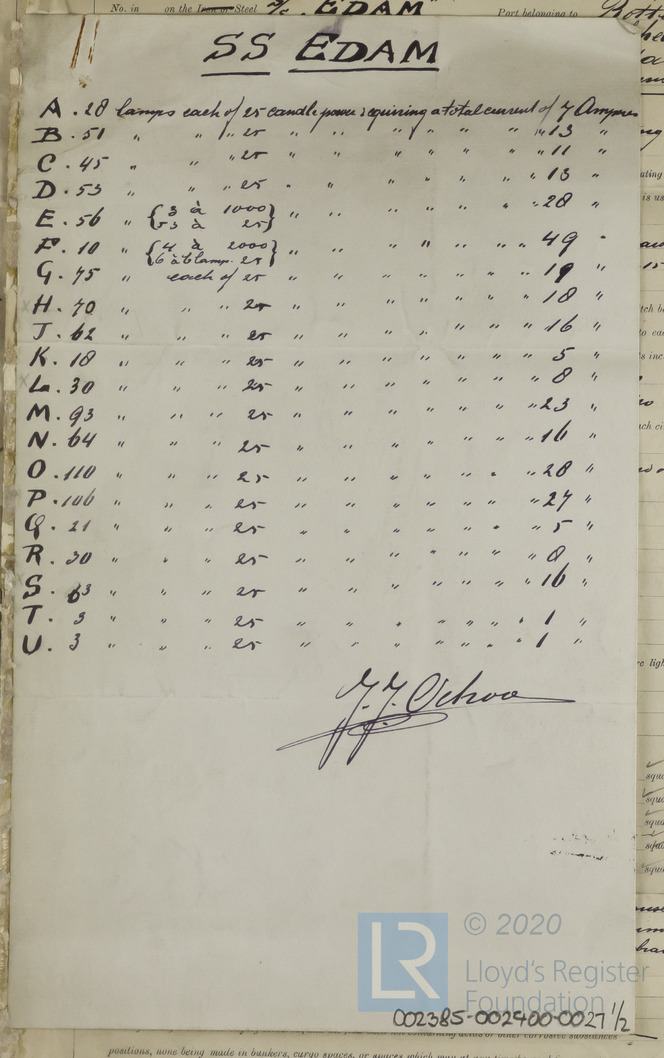 No. in on the Iron or Steel S/S "EDAM" Port belonging to
SS EDAM
A. 28 lamps each of 25 candle power requiring a total current of 7 Amperes
B. 51 " " " 25 " " " " " " " 13 "
C. 45 " " " 25 " " " " " " " 11 "
D. 53 " " " 25 " " " " " " " 13 "
E. 56 " { 3 à 1000 } " " " " " " " 28 "
53 à 25
F. 10 " { 4 à 2000 } " " " " " " " 49 "
6 à 6 lamp. 25
G. 75 " each of 25 " " " " " " " 19 "
H. 70 " " " 25 " " " " " " " 18 "
J. 62 " " " 25 " " " " " " " 16 "
K. 18 " " " 25 " " " " " " " 5 "
L. 30 " " " 25 " " " " " " " 8 "
M. 93 " " " 25 " " " " " " " 23 "
N. 64 " " " 25 " " " " " " " 16 "
O. 110 " " " 25 " " " " " " " 28 "
P. 106 " " " 25 " " " " " " " 27 "
Q. 21 " " " 25 " " " " " " " 5 "
R. 30 " " " 25 " " " " " " " 8 "
S. 63 " " " 25 " " " " " " " 16 "
T. 3 " " " 25 " " " " " " " 1 "
U. 3 " " " 25 " " " " " " " 1 "
© 2020
Lloyd's Register
Foundation
LR
002385-002400-0027 1/2
positions, none being made in bunkers, cargo spaces, or spaces which may